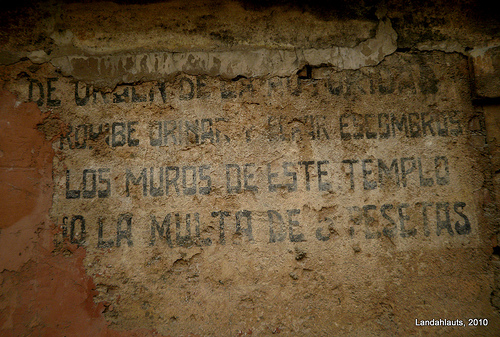 DE ORDEN DE LA AUTORIDAD
ROHIBE ORINAR Y ESCOMBROS
LOS MUROS DE ESTE TEMPLO
LA MULTA DE PESETAS
Landahlauts, 2010